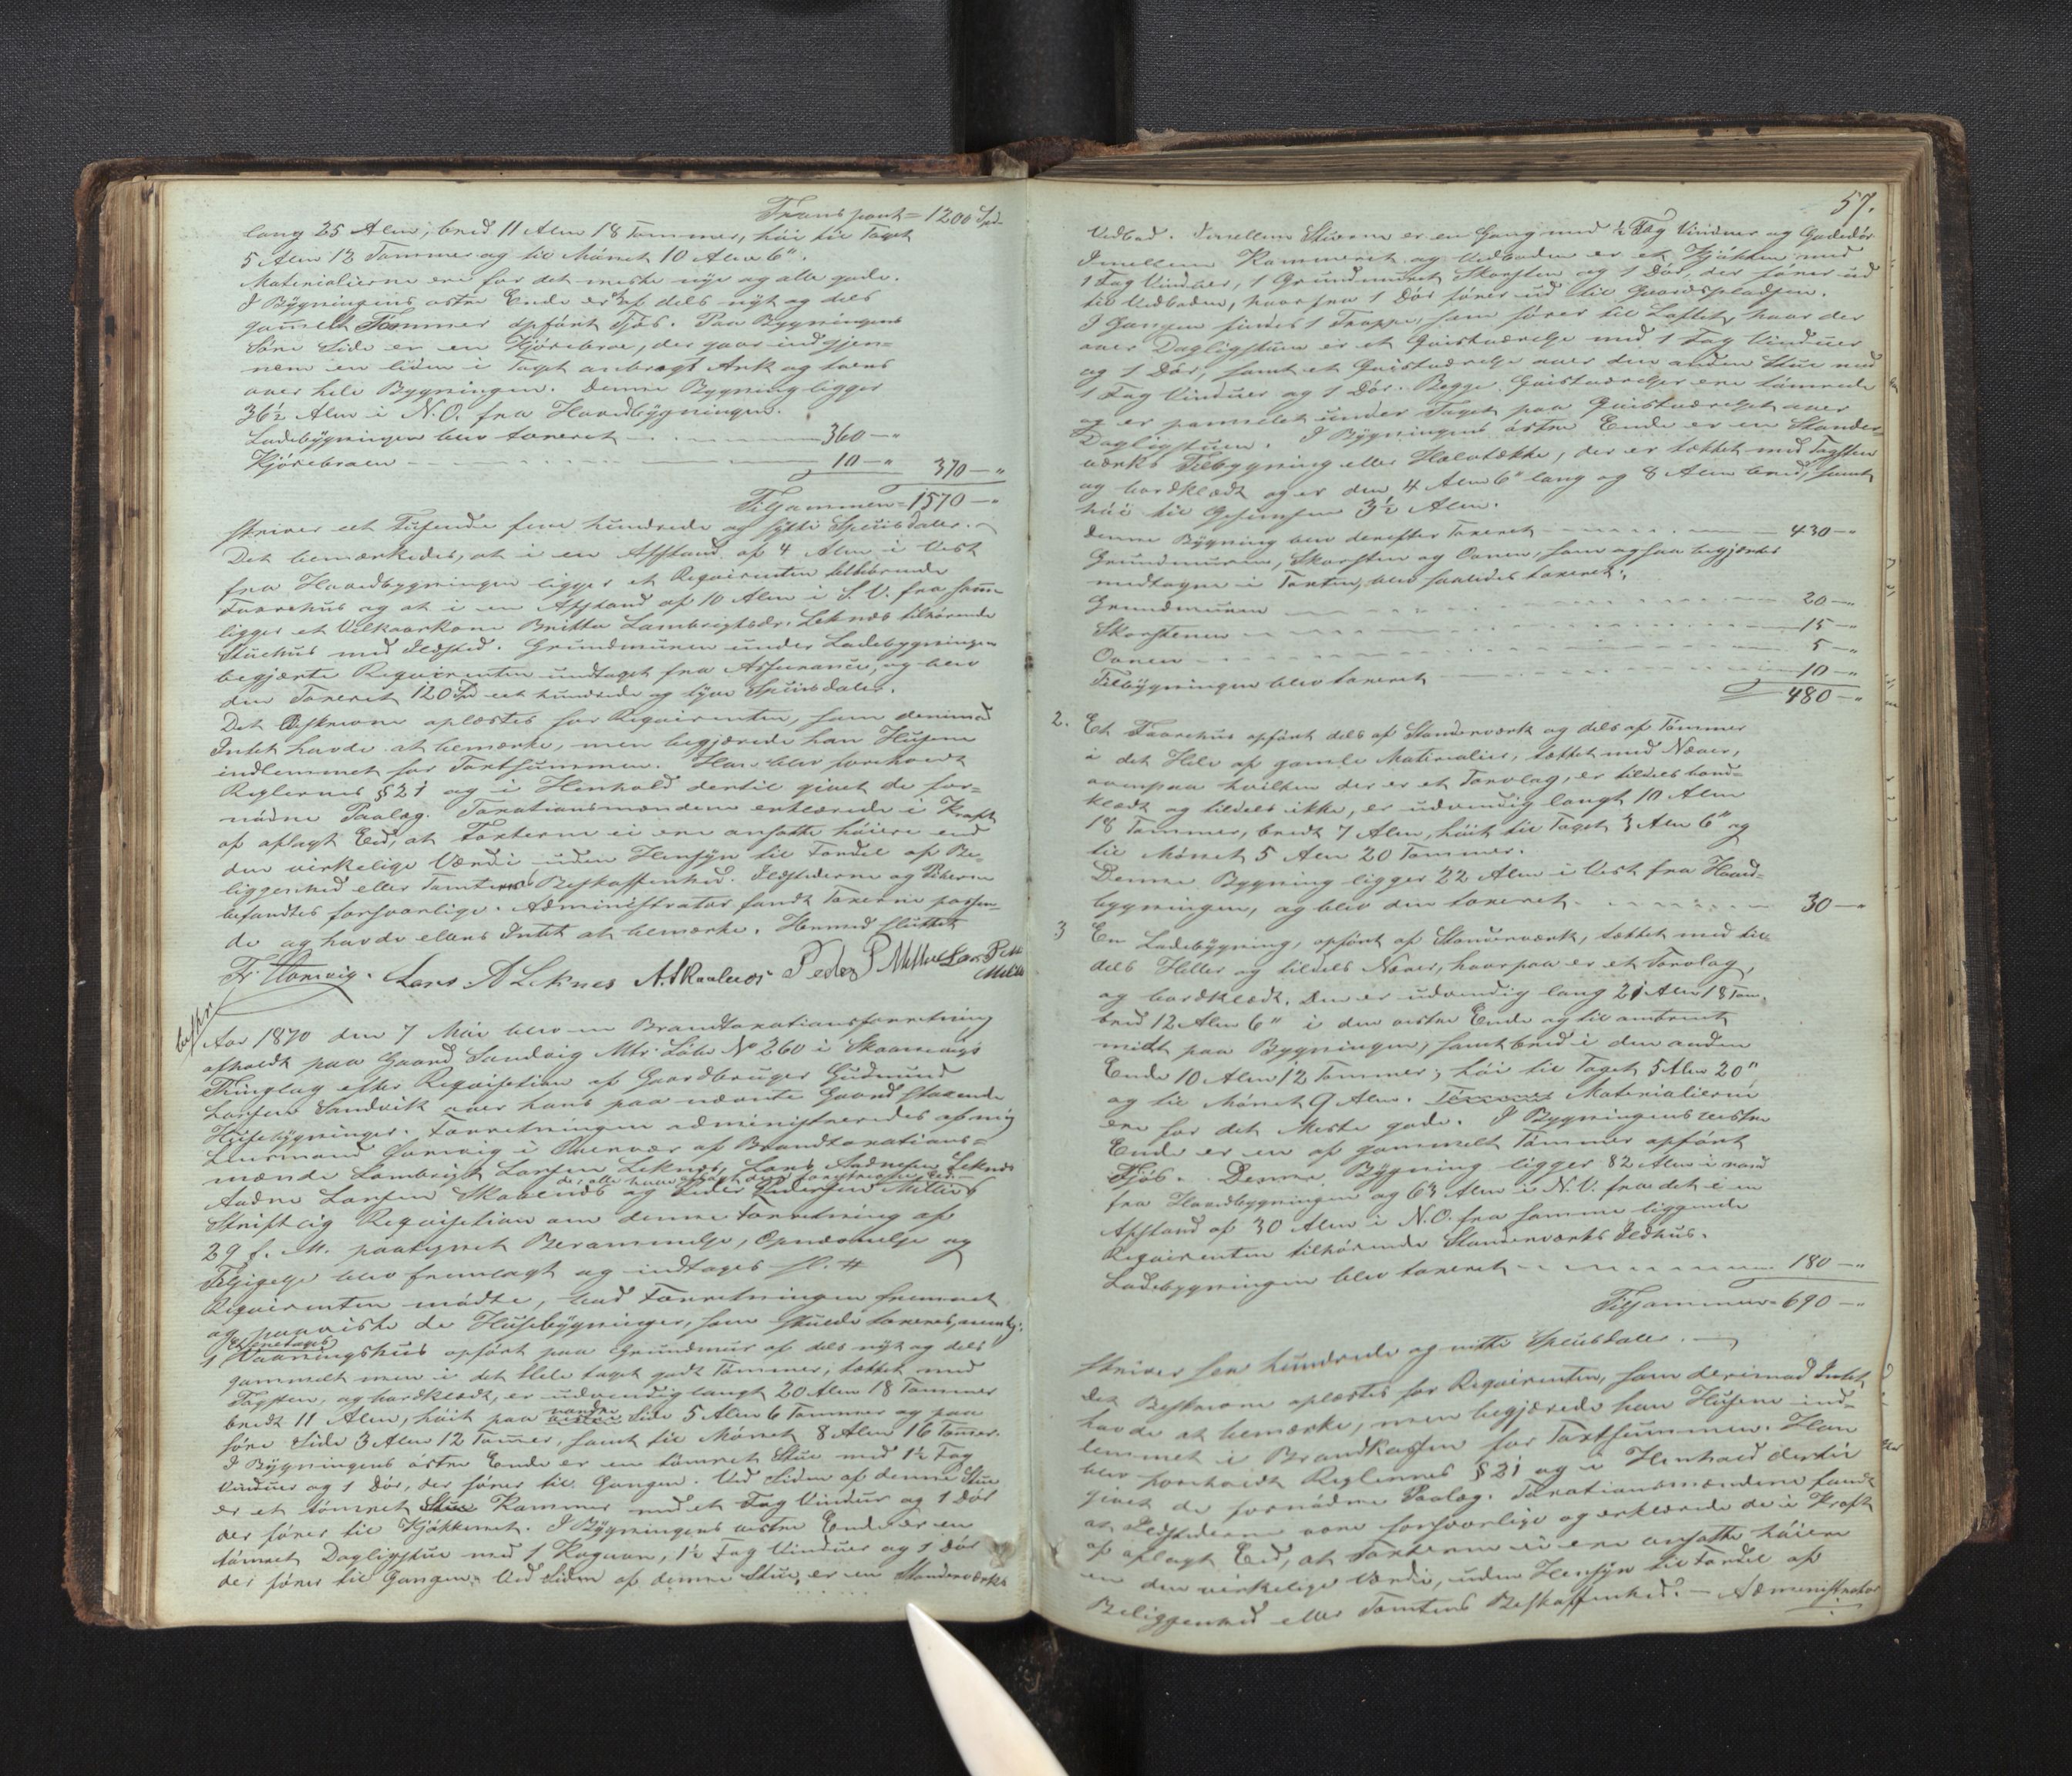 Transport = 1200 Spd.
lang 25 Alen, bred 11 Alen 18 Tommer, höi til Taget
5 Alen 12 Tommer og til Mönet 10 Alen 6".
Materialierne ere for det meste nye og alle gode.
I Bygningens östre Ende er et af dels nyt og dels
gammelt Tömmer opfört Fjös. Paa Bygningens
Söre Side er en Kjörebroe, der gaar ind gjen=
nem en liden i Taget anbragt Ark og
over hele Bygningen. Denne Bygning ligger
36½ Alen i N.O. fra Hovedbygningen.
Ladebygningen blev taxeret 360 — "
Kjörebroen 10 — " 370 — "
Tilsammen = 1570 — "
skriver eet Tusende fem hundrede og sytti Speciedaler.
Det bemærkedes, at i en Afstand af 4 Alen i Vest
fra Hovedbygningen ligger et Reqvirenten tilhörende
Faarehus og at i en Afstand af 10 Alen i S.V. fra samme
ligger et Vilkaarkone Britte Lambrigtsdr. Leknes tilhörende
Stuehus med Ildsted. Grundmuren under Ladebygningen
begjærte Reqvirenten undtaget fra Assurance, og blev
den Taxeret 120 Sp eet hundrede og tyve Speciedaler.
Det Beskrevne oplæstes for Reqvirenten, som derimod
Intet havde at bemærke, men begjærede han Husene
indlemmet for Taxtsummen. Han blev foreholdt
Reglernes § 21 og i Henhold dertil givet de for=
nödne Paalæg. Taxationsmændene erklærede i Kraft
af aflagt Eed, at Taxterne ei ere ansatte höiere end
den virkelige Værdi uden Hensyn til Fordel af Be=
liggenhed eller Tomtens Beskaffenhed. Ildstederne og Piberne
befandtes forsvarlige. Administrator fandt Taxterne passen=
de og havde ellers Intet at bemærke. Hermed sluttet
Lars A Leknes Peder P Mellie Lars
Aar 1870 den 7 Mai blev en Brandtaxationsforretning
afholdt paa Gaard Sandvig Mtr. Löbe No 260 i
Thinglag efter Reqvisition af Gaardbruger Gudmund
Larsen Sandvik over hans paa nævnte Gaard staaende
Husebygninger. Forretningen administreredes af mig
Lensmand i Overvær af Brandtaxations=
mænde Lambrigt Larsen Leknes, Lars Andersen Leknes
de alle have aflagt
Larsen Skaaenes og Peder Pedersen Mellies
Skriftlig Reqvisition om denne Forretning af
29 f. M. paategnet Berammelse, Opnævnelse og
blev fremlagt og indtages sl. #
Reqvirenten mödte, bad Forretningen fremmet
og paaviste de Husebygninger, som skulde taxeres, nemlig:
1 Eenetages
Vaaningshus opfört paa Grundmur af dels nyt og dels
gammelt men i det Hele taget godt Tömmer, tættet med
Tagsten, og bordklædt, er udvendig langt 20 Alen 18 Tommer
bredt 11 Alen, höit paa nordre Side 5 Alen 6 Tommer og paa
söre Side 3 Alen 12 Tommer, samt til Mönet 8 Alen 16 Tommer.
I Bygningens östre Ende er en tömret Stue med 1½ Fag
Vinduer og 1 Dör, der förer til Gangen. Ved Siden af denne Stue
er et tömret Kammer med et Fag Vinduer og 1 Dör
der förer til Kjökkenet. I Bygningens vestre Ende er en
tömret Dagligstue med 1 Kogovn, 1½ Fag Vinduer og 1 Dör
der förer til Gangen. Ved Siden af denne Stue, er en Standerværks
57.
Vedbod. Imellem Stuerne er en Gang med ½ Fag Vinduer og Gadedör
Imellem Kammeret og Vedboden er et Kjökken med
1 Fag Vinduer, 1 Grundmuret Skorsten og 1 Dör, der förer ud
til Vedboden, hvorfra 1 Dör förer ud til Gaardspladsen.
I Gangen findes 1 Trappe, som förer til Loftet, hvor der
over Dagligstuen er et Qvistværelse med 1 Fag Vinduer
og 1 Dör, samt et Qvistværelse over den anden Stue med
1 Fag Vinduer og 1 Dör. Begge Qvistværelser ere tömrede
og er pannelet under Taget paa Qvistværelset over
Dagligstuen. I Bygningens östre Ende er en Stander=
værks Tilbygning eller Halvtække, der er tættet med Tagsten
og bordklædt og er den 4 Alen 6" lang og 8 Alen bred, samt
höi til Gesimsen 3½ Alen.
Denne Bygning blev derefter Taxeret 430 — "
Grundmuren, Skorsten og Ovnen, som ogsaa begjærtes
medtagne i Taxten, blev saaledes taxeret:
Grundmuren 20 — "
Skorstenen 15 — "
Ovnen 5 — "
Tilbygningen blev taxeret 10 — "
480 — "
2. Et Faarehus opfört dels af Standerværk og dels af Tömmer
i det Hele af gamle Materialier, tættet med Næver,
ovenpaa hvilken der er et Torvlag, er tildels bord=
klædt og tildels ikke, er udvendig langt 10 Alen
18 Tommer, bredt 7 Alen, höit til Taget 3 Alen 6" og
til Mönet 5 Alen 20 Tommer.
Denne Bygning ligger 22 Alen i Vest fra Hoved=
bygningen, og blev den taxeret 30 — "
3 En Ladebygning, opfört af Standerværk, tættet med til=
dels Heller og tildels Næver, hvorpaa er et Torvlag,
og bordklædt. Den er udvendig lang 21 Alen 18 Tom.
bred 12 Alen 6" i den vestre Ende og til omtrent
midt paa Bygningen, samt bred i den anden
Ende 10 Alen 12 Tommer; höi til Taget 5 Alen 20"
og til Mönet 9 Alen. Materialierne
ere for det Meste gode. I Bygningens vestre
Ende er en af gammelt Tömmer opfört
Fjös. Denne Bygning ligger 82 Alen i nord
fra Hovedbygningen og 63 Alen i N.V. fra det i en
Afstand af 30 Alen i N.O. fra samme liggende
Reqvirenten tilhörende Standerværks Ildhus.
Ladebygningen blev taxeret 180 — "
Tilsammen = 690 — "
skriver sex hundrede og nitti Speciedaler.
Det Beskrevne oplæstes for Reqvirenten, som derimod Intet
havde at bemærke, men begjærede han Husene ind=
lemmet i Brandkassen for Taxtsummen. Han
blev foreholdt Reglernes § 21 og i Henhold dertil
givet de fornödne Paalæg. Taxationsmændene fandt
at Ildstederne vare forsvarlige og erklærede de i Kraft
af aflagt Eed, at Taxterne ei ere ansatte höiere
en den virkelige Værdi, uden Hensyn til Fordel af
Beliggenhed eller Tomtens Beskaffenhed. — Administrator